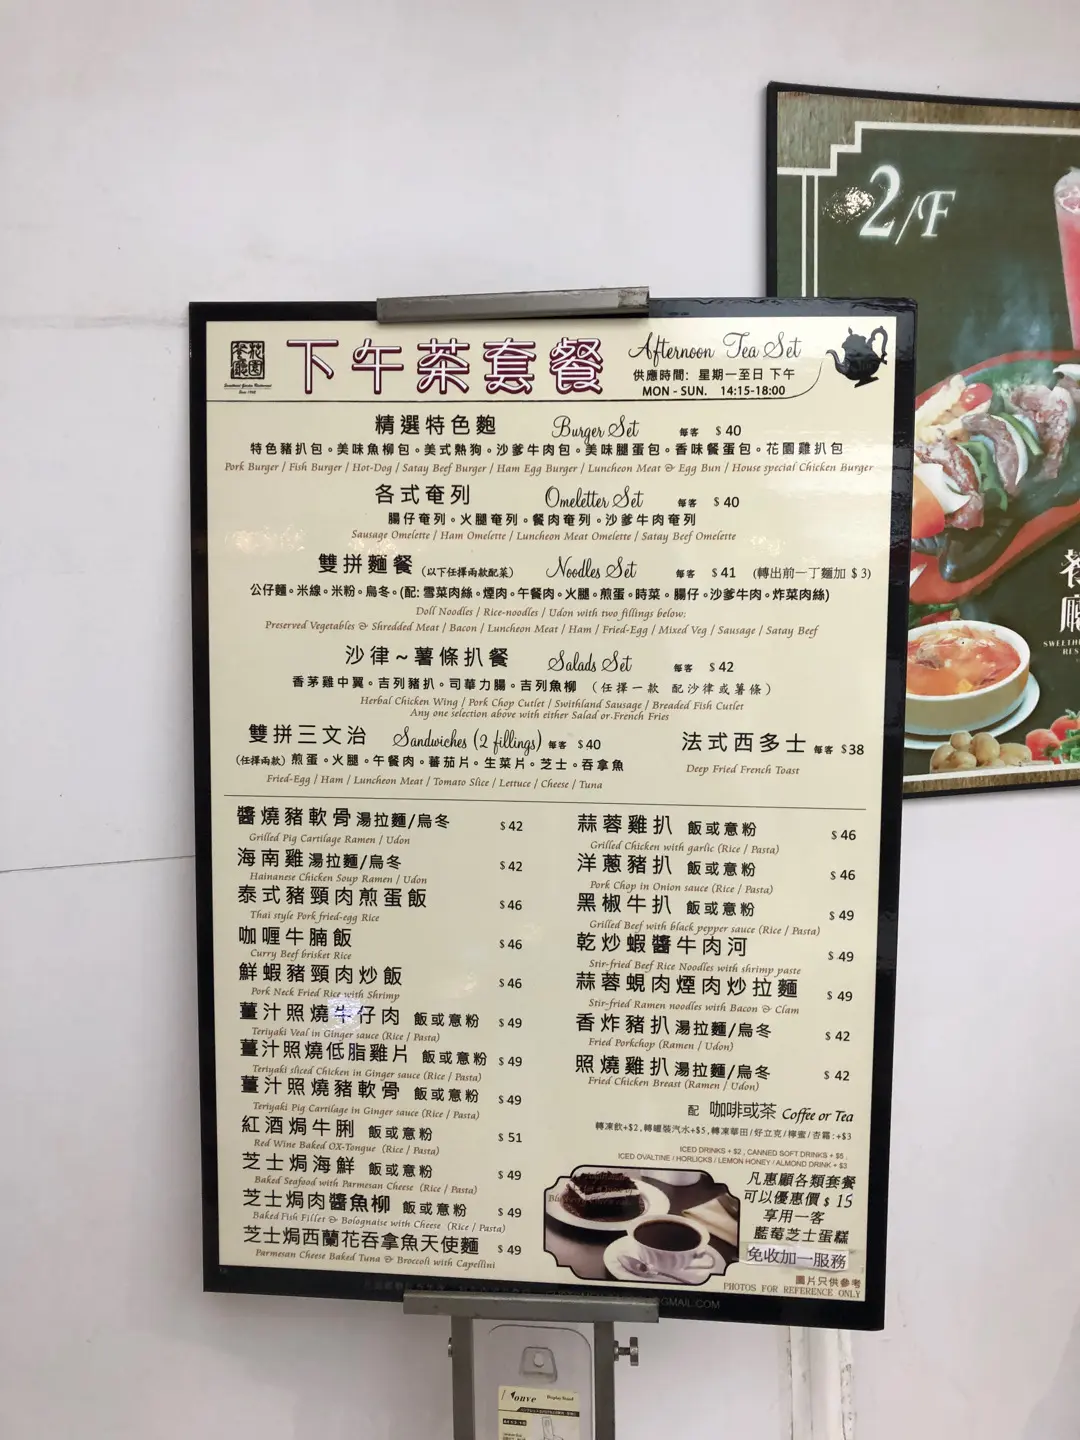 花園餐廳
Sweetheart Garden Restaurant
下午茶套餐
Afternoon Tea Set
供應時間: 星期一至日 下午
MON - SUN. 14:15-18:00
精選特色麭 Burger Set 每客 $ 40
特色豬扒包。美味魚柳包。美式熱狗。沙爹牛肉包。美味腿蛋包。香味餐蛋包。花園雞扒包
Pork Burger / Fish Burger / Hot-Dog / Satay Beef Burger / Ham Egg Burger / Luncheon Meat & Egg Bun / House special Chicken Burger
各式奄列 Omeletter Set 每客 $ 40
腸仔奄列。火腿奄列。餐肉奄列。沙爹牛肉奄列
Sausage Omelette / Ham Omelette / Luncheon Meat Omelette / Satay Beef Omelette
雙拼麵餐 (以下任擇兩款配菜) Noodles Set 每客 $ 41 (轉出前一丁麵加 $ 3)
公仔麵。米線。米粉。烏冬。(配: 雪菜肉絲。煙肉。午餐肉。火腿。煎蛋。時菜。腸仔。沙爹牛肉。炸菜肉絲)
Doll Noodles / Rice-noodles / Udon with two fillings below:
Preserved Vegetables & Shredded Meat / Bacon / Luncheon Meat / Ham / Fried-Egg / Mixed Veg / Sausage / Satay Beef
沙律~薯條扒餐 Salads Set 每客 $ 42
香茅雞中翼。吉列豬扒。司華力腸。吉列魚柳 (任擇一款 配沙律或薯條)
Herbal Chicken Wing / Pork Chop Cutlet / Swithland Sausage / Breaded Fish Cutlet
Any one selection above with either Salad or French Fries
雙拼三文治 Sandwiches (2 fillings) 每客 $40
(任擇兩款) 煎蛋。火腿。午餐肉。蕃茄片。生菜片。芝士。吞拿魚
Fried-Egg / Ham / Luncheon Meat / Tomato Slice / Lettuce / Cheese / Tuna
法式西多士 每客 $38
Deep Fried French Toast
醬燒豬軟骨湯拉麵/烏冬 $ 42
Grilled Pig Cartilage Ramen / Udon
海南雞湯拉麵/烏冬 $ 42
Hainanese Chicken Soup Ramen / Udon
泰式豬頸肉煎蛋飯 $ 46
Thai style Pork fried-egg Rice
咖喱牛腩飯 $ 46
Curry Beef brisket Rice
鮮蝦豬頸肉炒飯 $ 46
Pork Neck Fried Rice with Shrimp
薑汁照燒牛仔肉 飯或意粉 $ 49
Teriyaki Veal in Ginger sauce (Rice / Pasta)
薑汁照燒低脂雞片 飯或意粉 $ 49
Teriyaki sliced Chicken in Ginger sauce (Rice / Pasta)
薑汁照燒豬軟骨 飯或意粉 $ 49
Teriyaki Pig Cartilage in Ginger sauce (Rice / Pasta)
紅酒焗牛脷 飯或意粉 $ 51
Red Wine Baked OX-Tongue (Rice / Pasta)
芝士焗海鮮 飯或意粉 $ 49
Baked Seafood with Parmesan Cheese (Rice / Pasta)
芝士焗肉醬魚柳 飯或意粉 $ 49
Baked Fish Fillet & Bolognaise with Cheese (Rice / Pasta)
芝士焗西蘭花吞拿魚天使麵 $ 49
Parmesan Cheese Baked Tuna & Broccoli with Capellini
蒜蓉雞扒 飯或意粉 $ 46
Grilled Chicken with garlic (Rice / Pasta)
洋蔥豬扒 飯或意粉 $ 46
Pork Chop in Onion sauce (Rice / Pasta)
黑椒牛扒 飯或意粉 $ 49
Grilled Beef with black pepper sauce (Rice / Pasta)
乾炒蝦醬牛肉河 $ 49
Stir-fried Beef Rice Noodles with shrimp paste
蒜蓉蜆肉煙肉炒拉麵 $ 49
Stir-fried Ramen noodles with Bacon & Clam
香炸豬扒湯拉麵/烏冬 $ 42
Fried Porkchop (Ramen / Udon)
照燒雞扒湯拉麵/烏冬 $ 42
Fried Chicken Breast (Ramen / Udon)
配 咖啡或茶 Coffee or Tea
轉凍飲+$2,轉罐裝汽水+$5,轉凍華田/好立克/檸蜜/杏霜:+$3
ICED DRINKS + $2 , CANNED SOFT DRINKS + $5 ,
ICED OVALTINE / HORLICKS / LEMON HONEY / ALMOND DRINK + $3
凡惠顧各類套餐
可以優惠價 $ 15
享用一客
藍莓芝士蛋糕
免收加一服務
圖片只供參考
PHOTOS FOR REFERENCE ONLY
GMAIL.COM
2/F
餐
廳
Display Stand